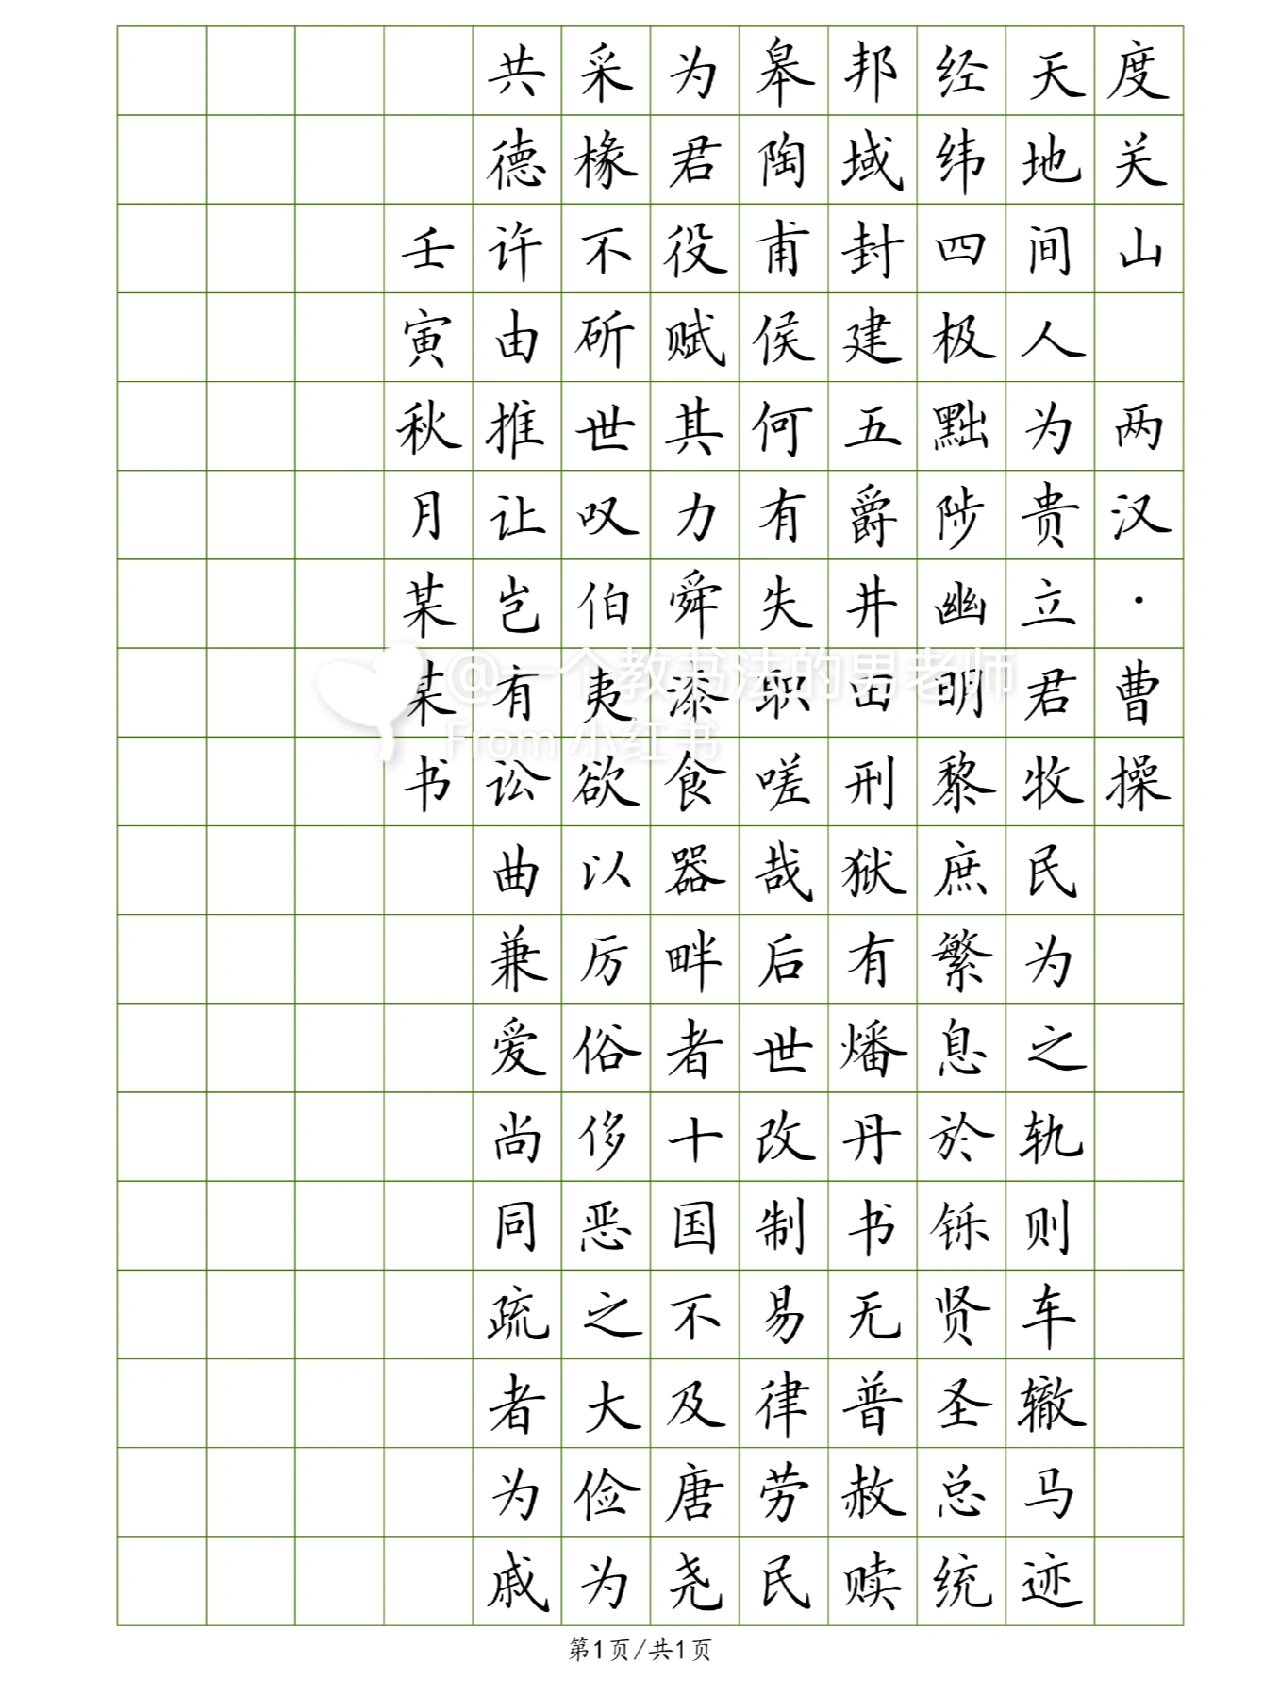 度关山 两汉·曹操
天地间人为贵立君牧民为之轨则车辙马迹
经纬四极黜陟幽明黎庶繁息於铄贤圣总统
邦域封建五爵井田刑狱有燔丹书无普赦赎
皋陶甫侯何有失职嗟哉后世改制易律劳民
为君役赋其力舜漆食器畔者十国不及唐尧
采椽不斫世叹伯夷欲以厉俗侈恶之大俭为
共德许由推让岂有讼曲兼爱尚同疏者为戚
壬寅秋月某某书
@一个教书法的男老师
From 小红书
第1页/共1页